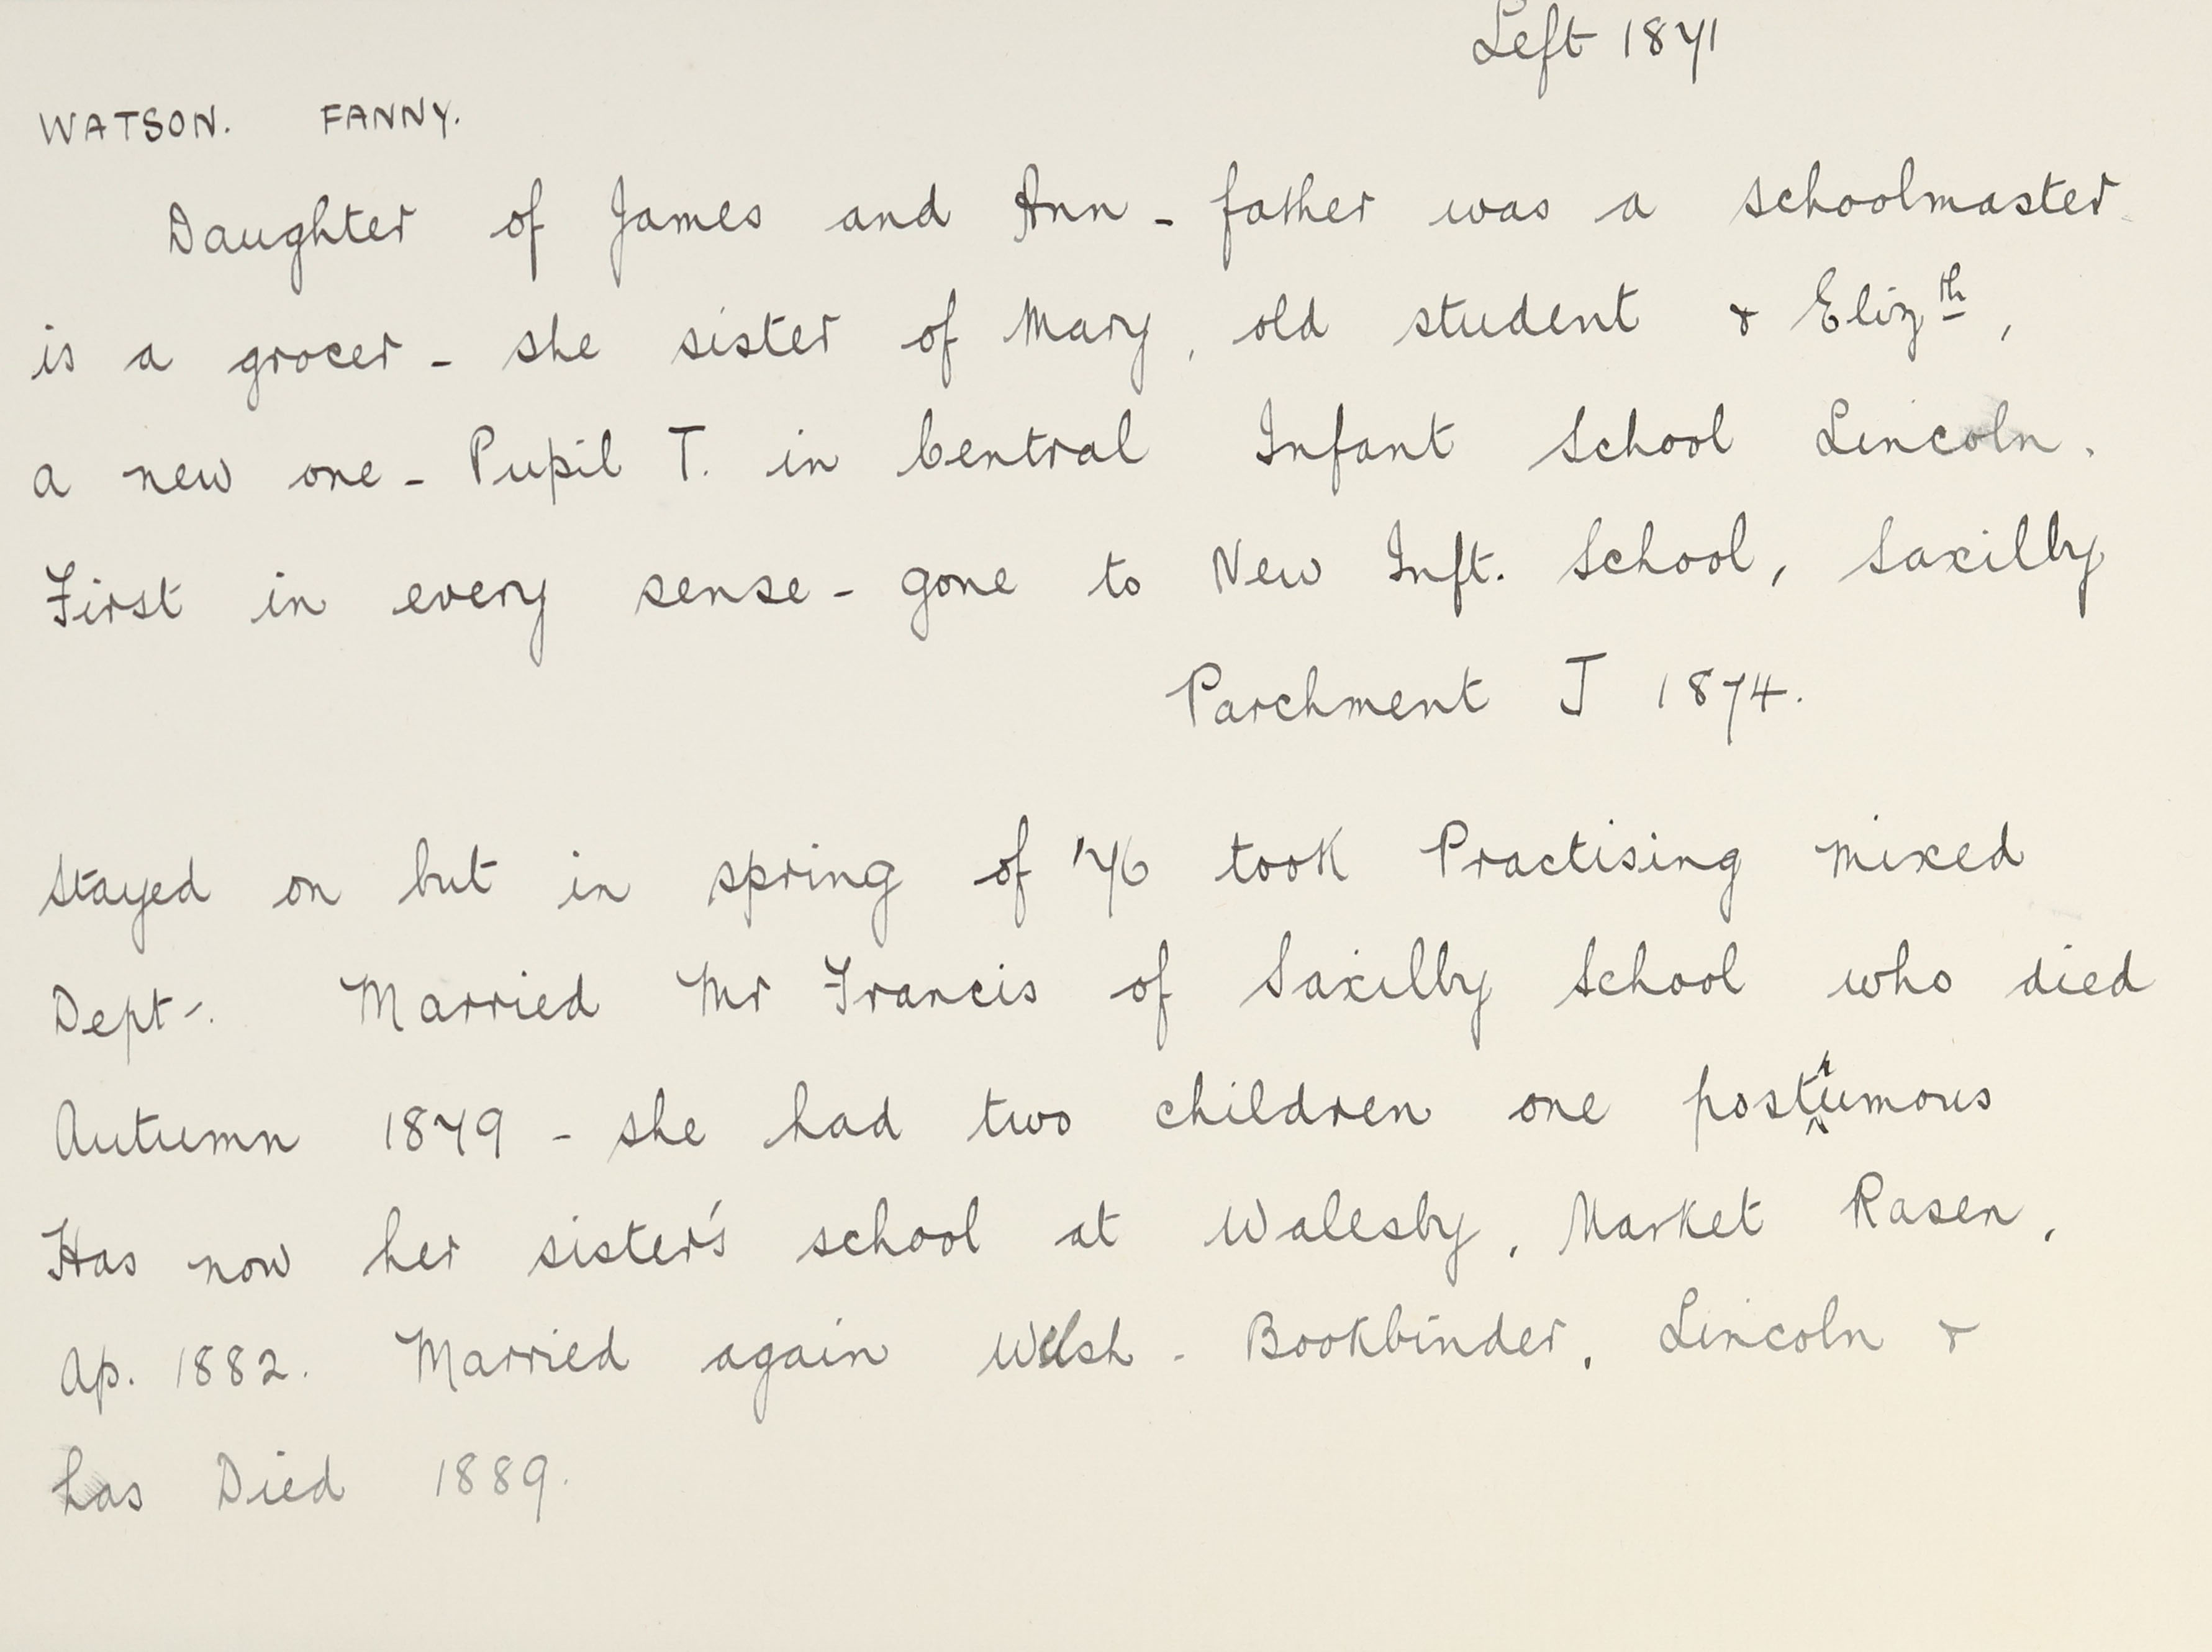 Left 1871
WATSON. FANNY.
Daughter of James and Ann - father was a schoolmaster
is a grocer - she sister of Mary, old student & Elizth,
a new one - Pupil T. in Central Infant School Lincoln.
First in every sense - gone to New Inft. School, Saxilby
Parchment J 1874.
Stayed on but in spring of '76 took Practising mixed
Dept-. Married Mr Francis of Saxilby School who died
Autumn 1879 - she had two children one posthumous
Has now her sister's school at Walesby, Market Rasen,
Ap. 1882. Married again Welsh - Bookbinder, Lincoln &
has Died 1889.